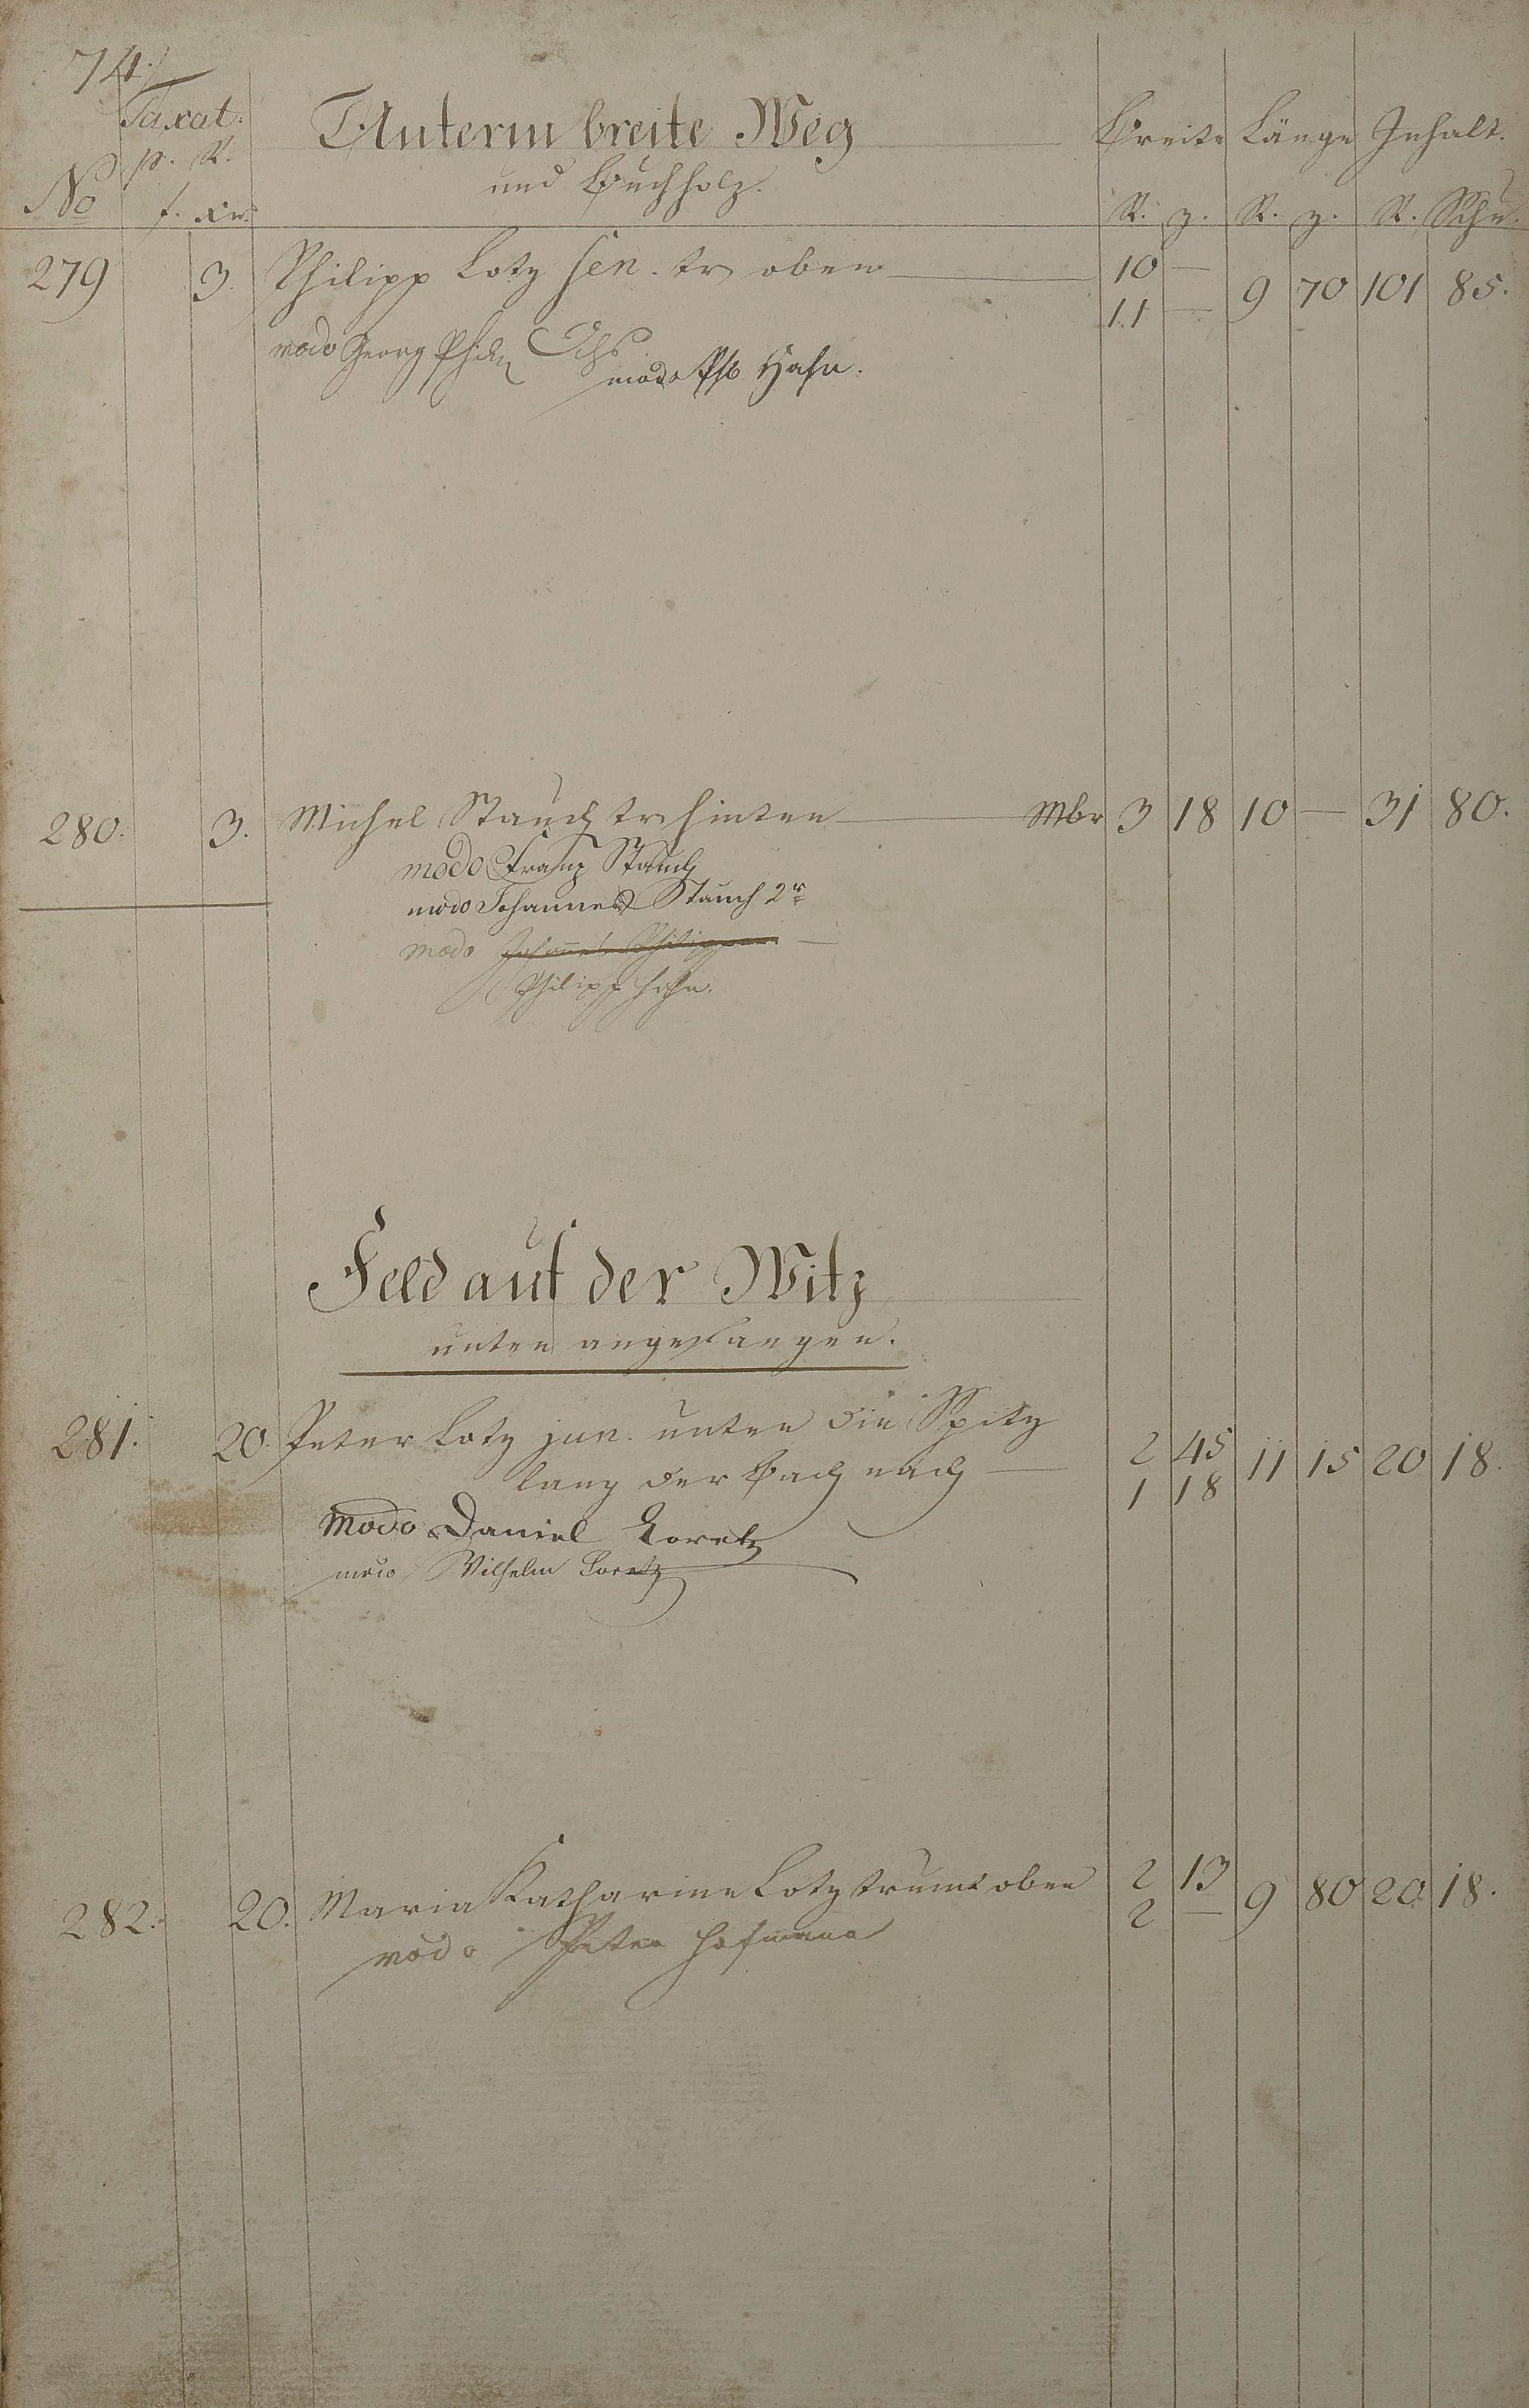 74.
Taxat. Unterm breite Weg Breite Länge Inhalt.
p. R. und Buchholz.
No f. xr. R. z. R. z. R. Schu.
279 3. Philipp Lotz sen. tr oben 10 — 9 70 101 85.
11 —
modo Georg Ochs
modo Ph Hahn.
280. 3. Michel Stauch tr hinten Mbr 3 18 10 — 31 80.
modo Franz Stauch
modo Johannes Stauch 2r
modo Johannes Philippar
Philipp Hahn.
Feld auf der Witz
unten angefangen.
281. 20. Peter Lotz jun. unten die Spitz 2 45 11 15 20 18.
lang der Bach nach — 1 18
modo Daniel Loretz
modo Wilhelm Loretz
282. 20. Maria Katharine Lotz trumt oben 2 13 9 80 20 18.
2 —
modo Peter Hofmann